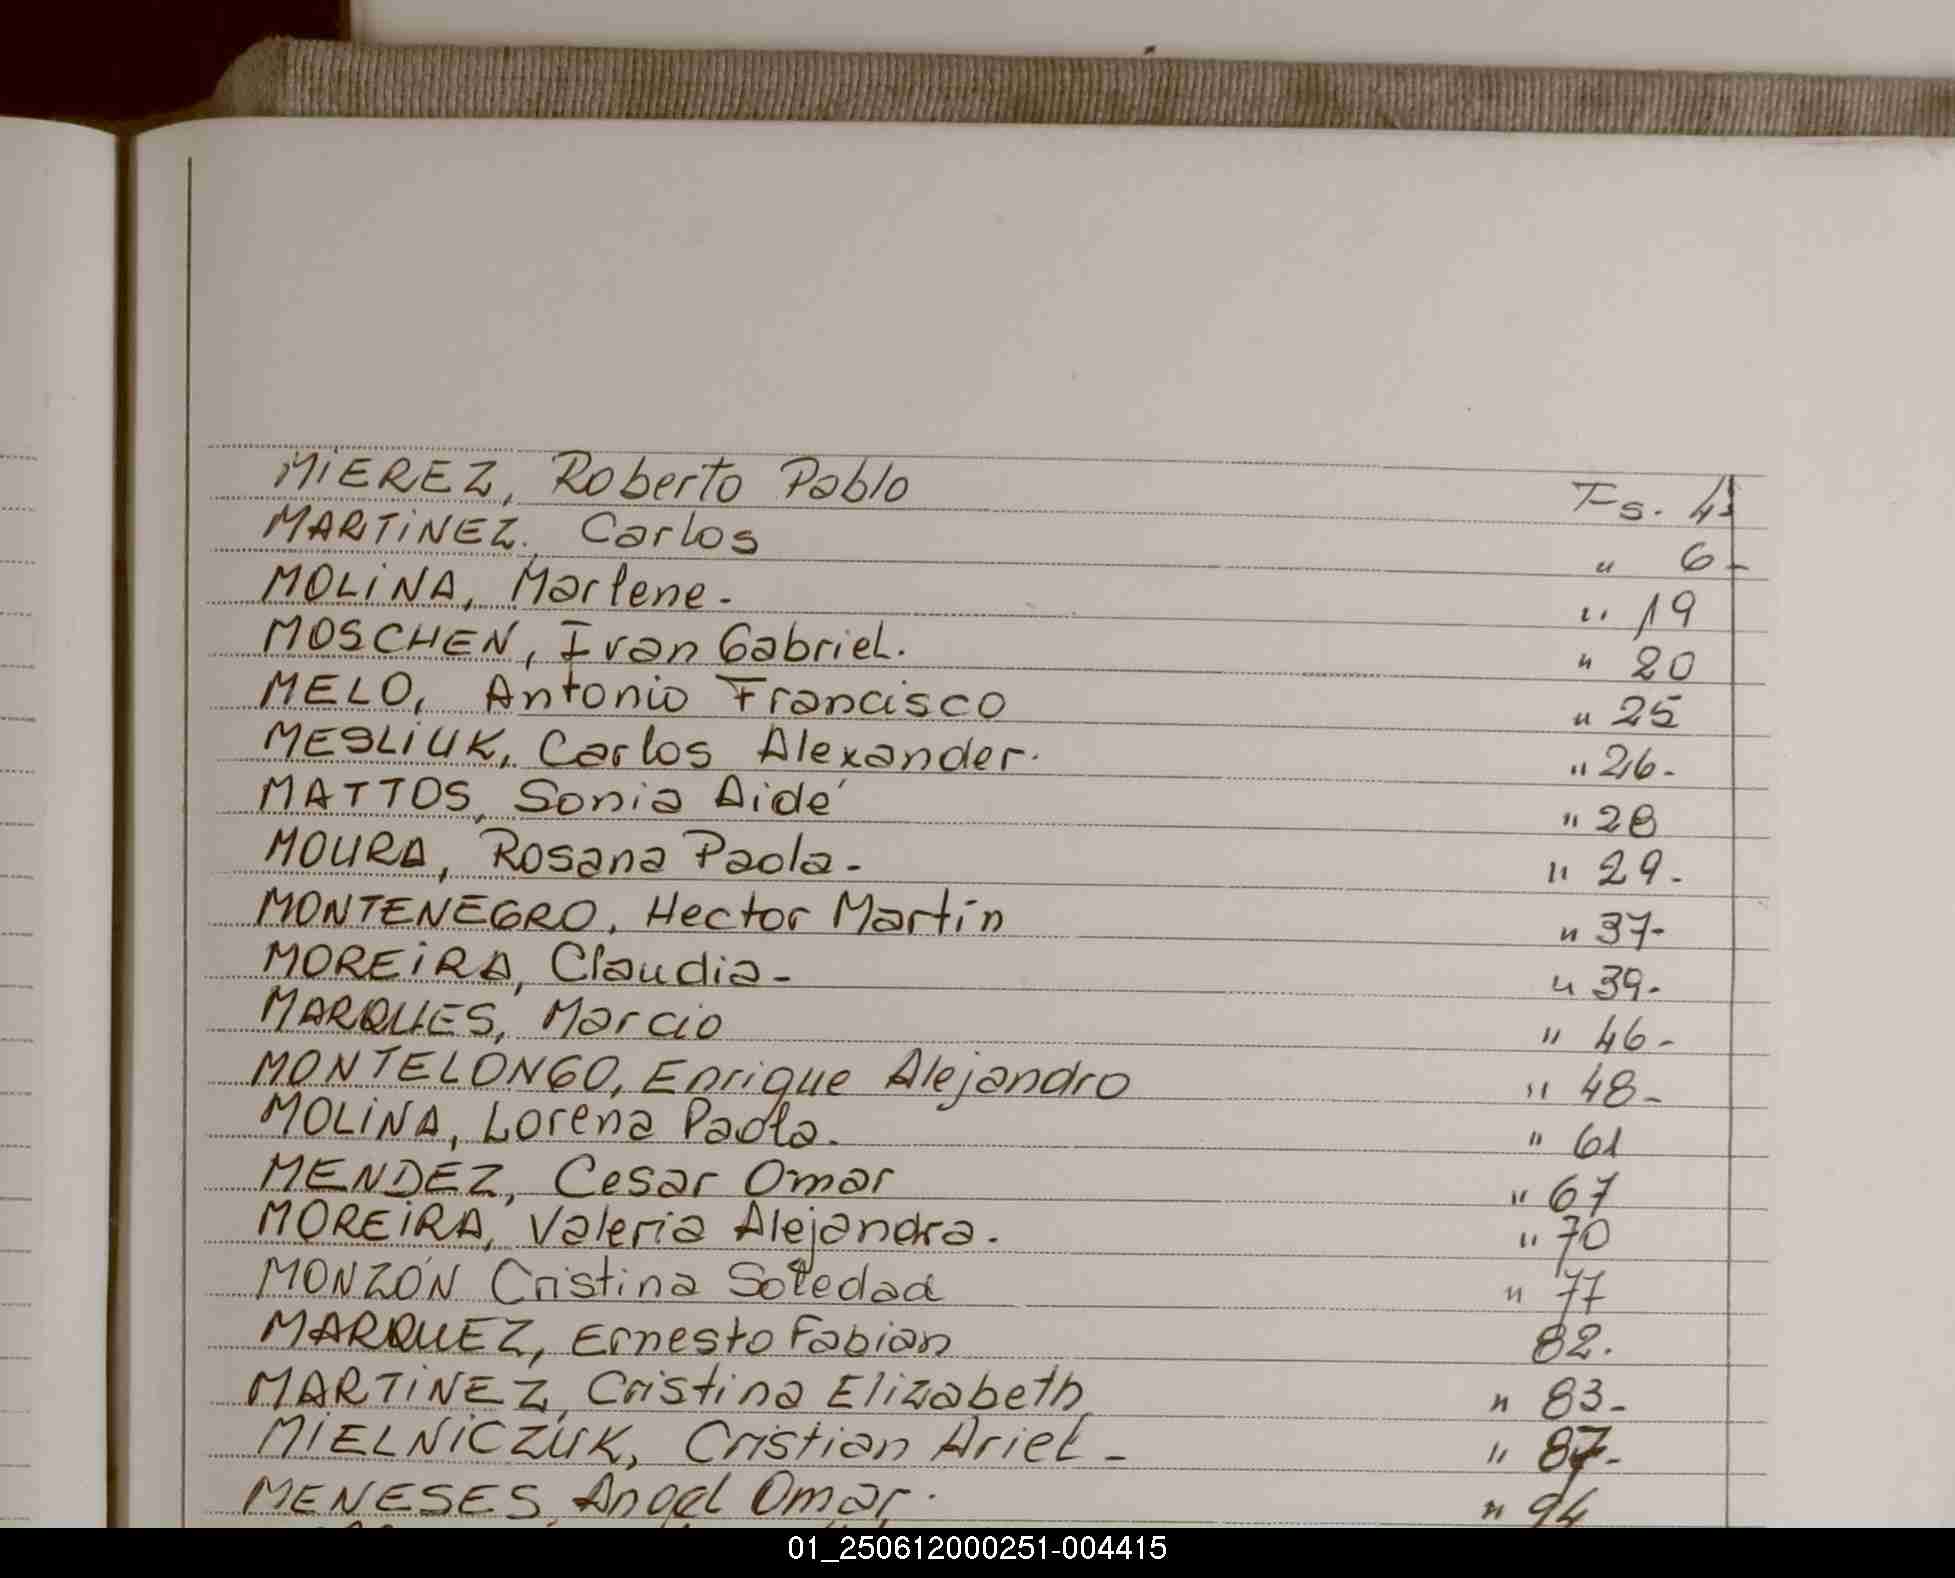 MIEREZ, Roberto Pablo Fs. 4
MARTINEZ, Carlos " 6-
MOLINA, Marlene. " 19
MOSCHEN, Ivan Gabriel. " 20
MELO, Antonio Francisco " 25
MESLIUK, Carlos Alexander. " 26-
MATTOS, Sonia Aidé " 28
MOURA, Rosana Paola. " 29-
MONTENEGRO, Hector Martín " 37-
MOREIRA, Claudia- " 39-
MARQUES, Marcio " 46-
MONTELONGO, Enrique Alejandro " 48-
MOLINA, Lorena Paola. " 61
MENDEZ, Cesar Omar " 67
MOREIRA, Valeria Alejandra. " 70
MONZÓN Cristina Soledad " 77
MARQUEZ, Ernesto Fabian 82.
MARTINEZ, Cristina Elizabeth " 83-
MIELNICZUK, Cristian Ariel- " 87-
MENESES, Angel Omar. " 94
01_250612000251-004415